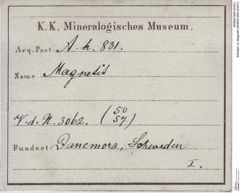 K. K. Mineralogisches Museum.
Acq. Post. A. h. 831.
Name. Magnetit
V. d. N. 3062. (50/57)
Fundort: Danemora, Schweden
I.